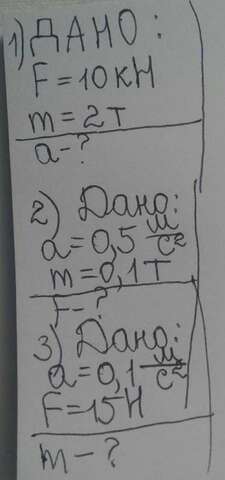 1) ДАНО:
F=10кН
m=2т
a-?
2) Дано:
a=0,5 м/с²
m=0,1т
F-?
3) Дано:
a=0,1 м/с²
F=15Н
m-?